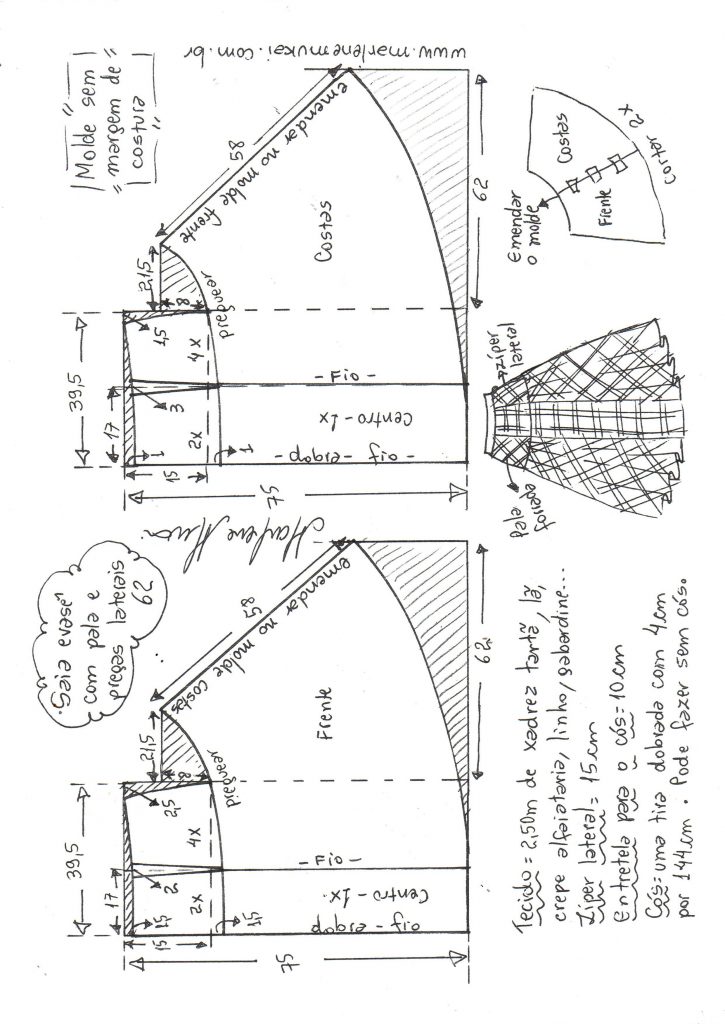 "Saia evasê"
com pala e
pregas laterais
62
"Molde sem"
"margem de"
costura
www.marlenemukai.com.br
39,5
17
15
1,5
2
2,5
2x
4x
1,5
8
21,5
preguear
58
emendar no molde costas
Frente
- Fio -
Centro - 1x
dobra - fio
75
62
Marlene Mukai
39,5
17
15
1
3
1,5
2x
4x
1
8
21,5
preguear
58
emendar no molde frente
Costas
- Fio -
Centro - 1x
- dobra - fio -
75
62
Tecido = 2,50m de xadrez tartã, lã,
crepe alfaiataria, linho, gabardine...
Zíper lateral = 15cm
Entretela para o cós = 10cm
Cós = uma tira dobrada com 4cm
por 144cm. Pode fazer sem cós.
pala
forrada
zíper
lateral
Emendar
o molde
Costas
Frente
Cortar 2x